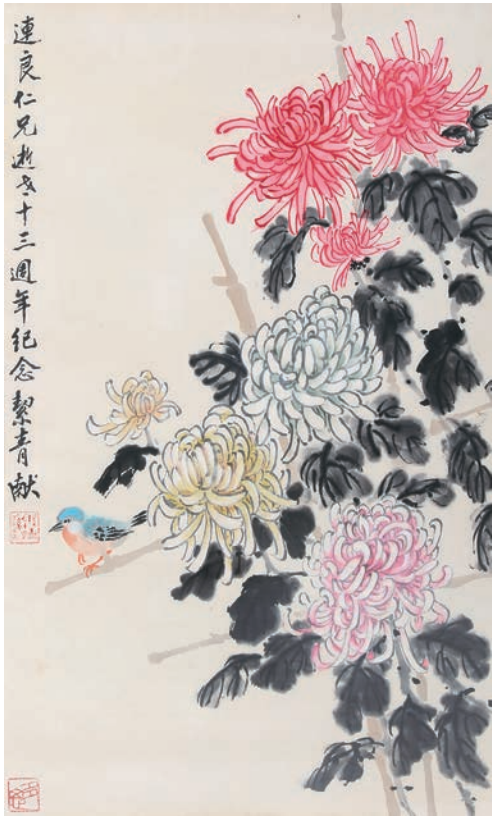 連良仁兄逝世十三週年纪念絜青献